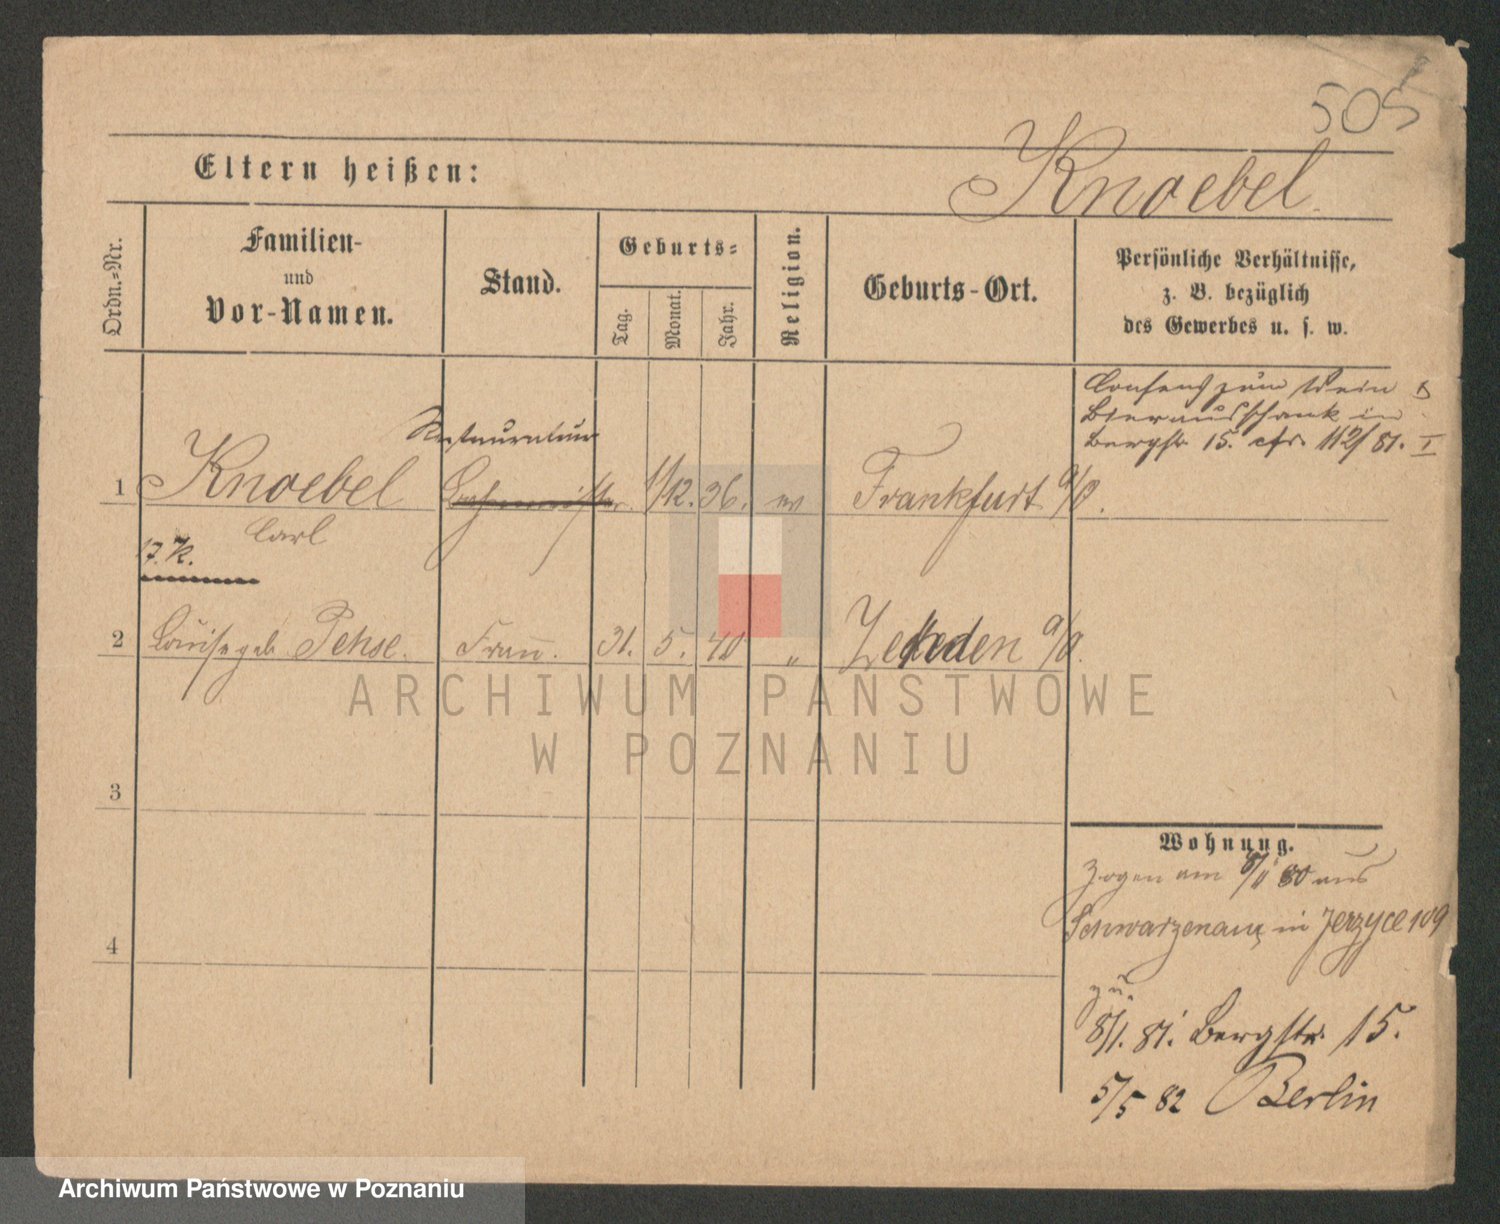 505
Eltern heißen:
Knoebel.
Ordn.=Nr.
Familien-
und
Vor-Namen.
Stand.
Geburts=
Tag.
Monat.
Jahr.
Religion.
Geburts-Ort.
Persönliche Verhältnisse,
z. B. bezüglich
des Gewerbes u. s. w.
Consens zum Wein &
Bierausschank in
Bergstr. 15. cfr. 112/81. I
Restaurateur
1 Knoebel 11/12. 36. ev Frankfurt a/O.
Carl
17. K.
2 Louise geb. Pehse. Frau. 31. 5. 40 " Zehden a/O.
ARCHIWUM PAŃSTWOWE
W POZNANIU
3
4
Wohnung.
Zogen am 8/11 80 aus
Schwarzenau in Jerzyce 109
zu.
8/1. 81. Bergstr. 15.
5/5 82 Berlin
Archiwum Państwowe w Poznaniu